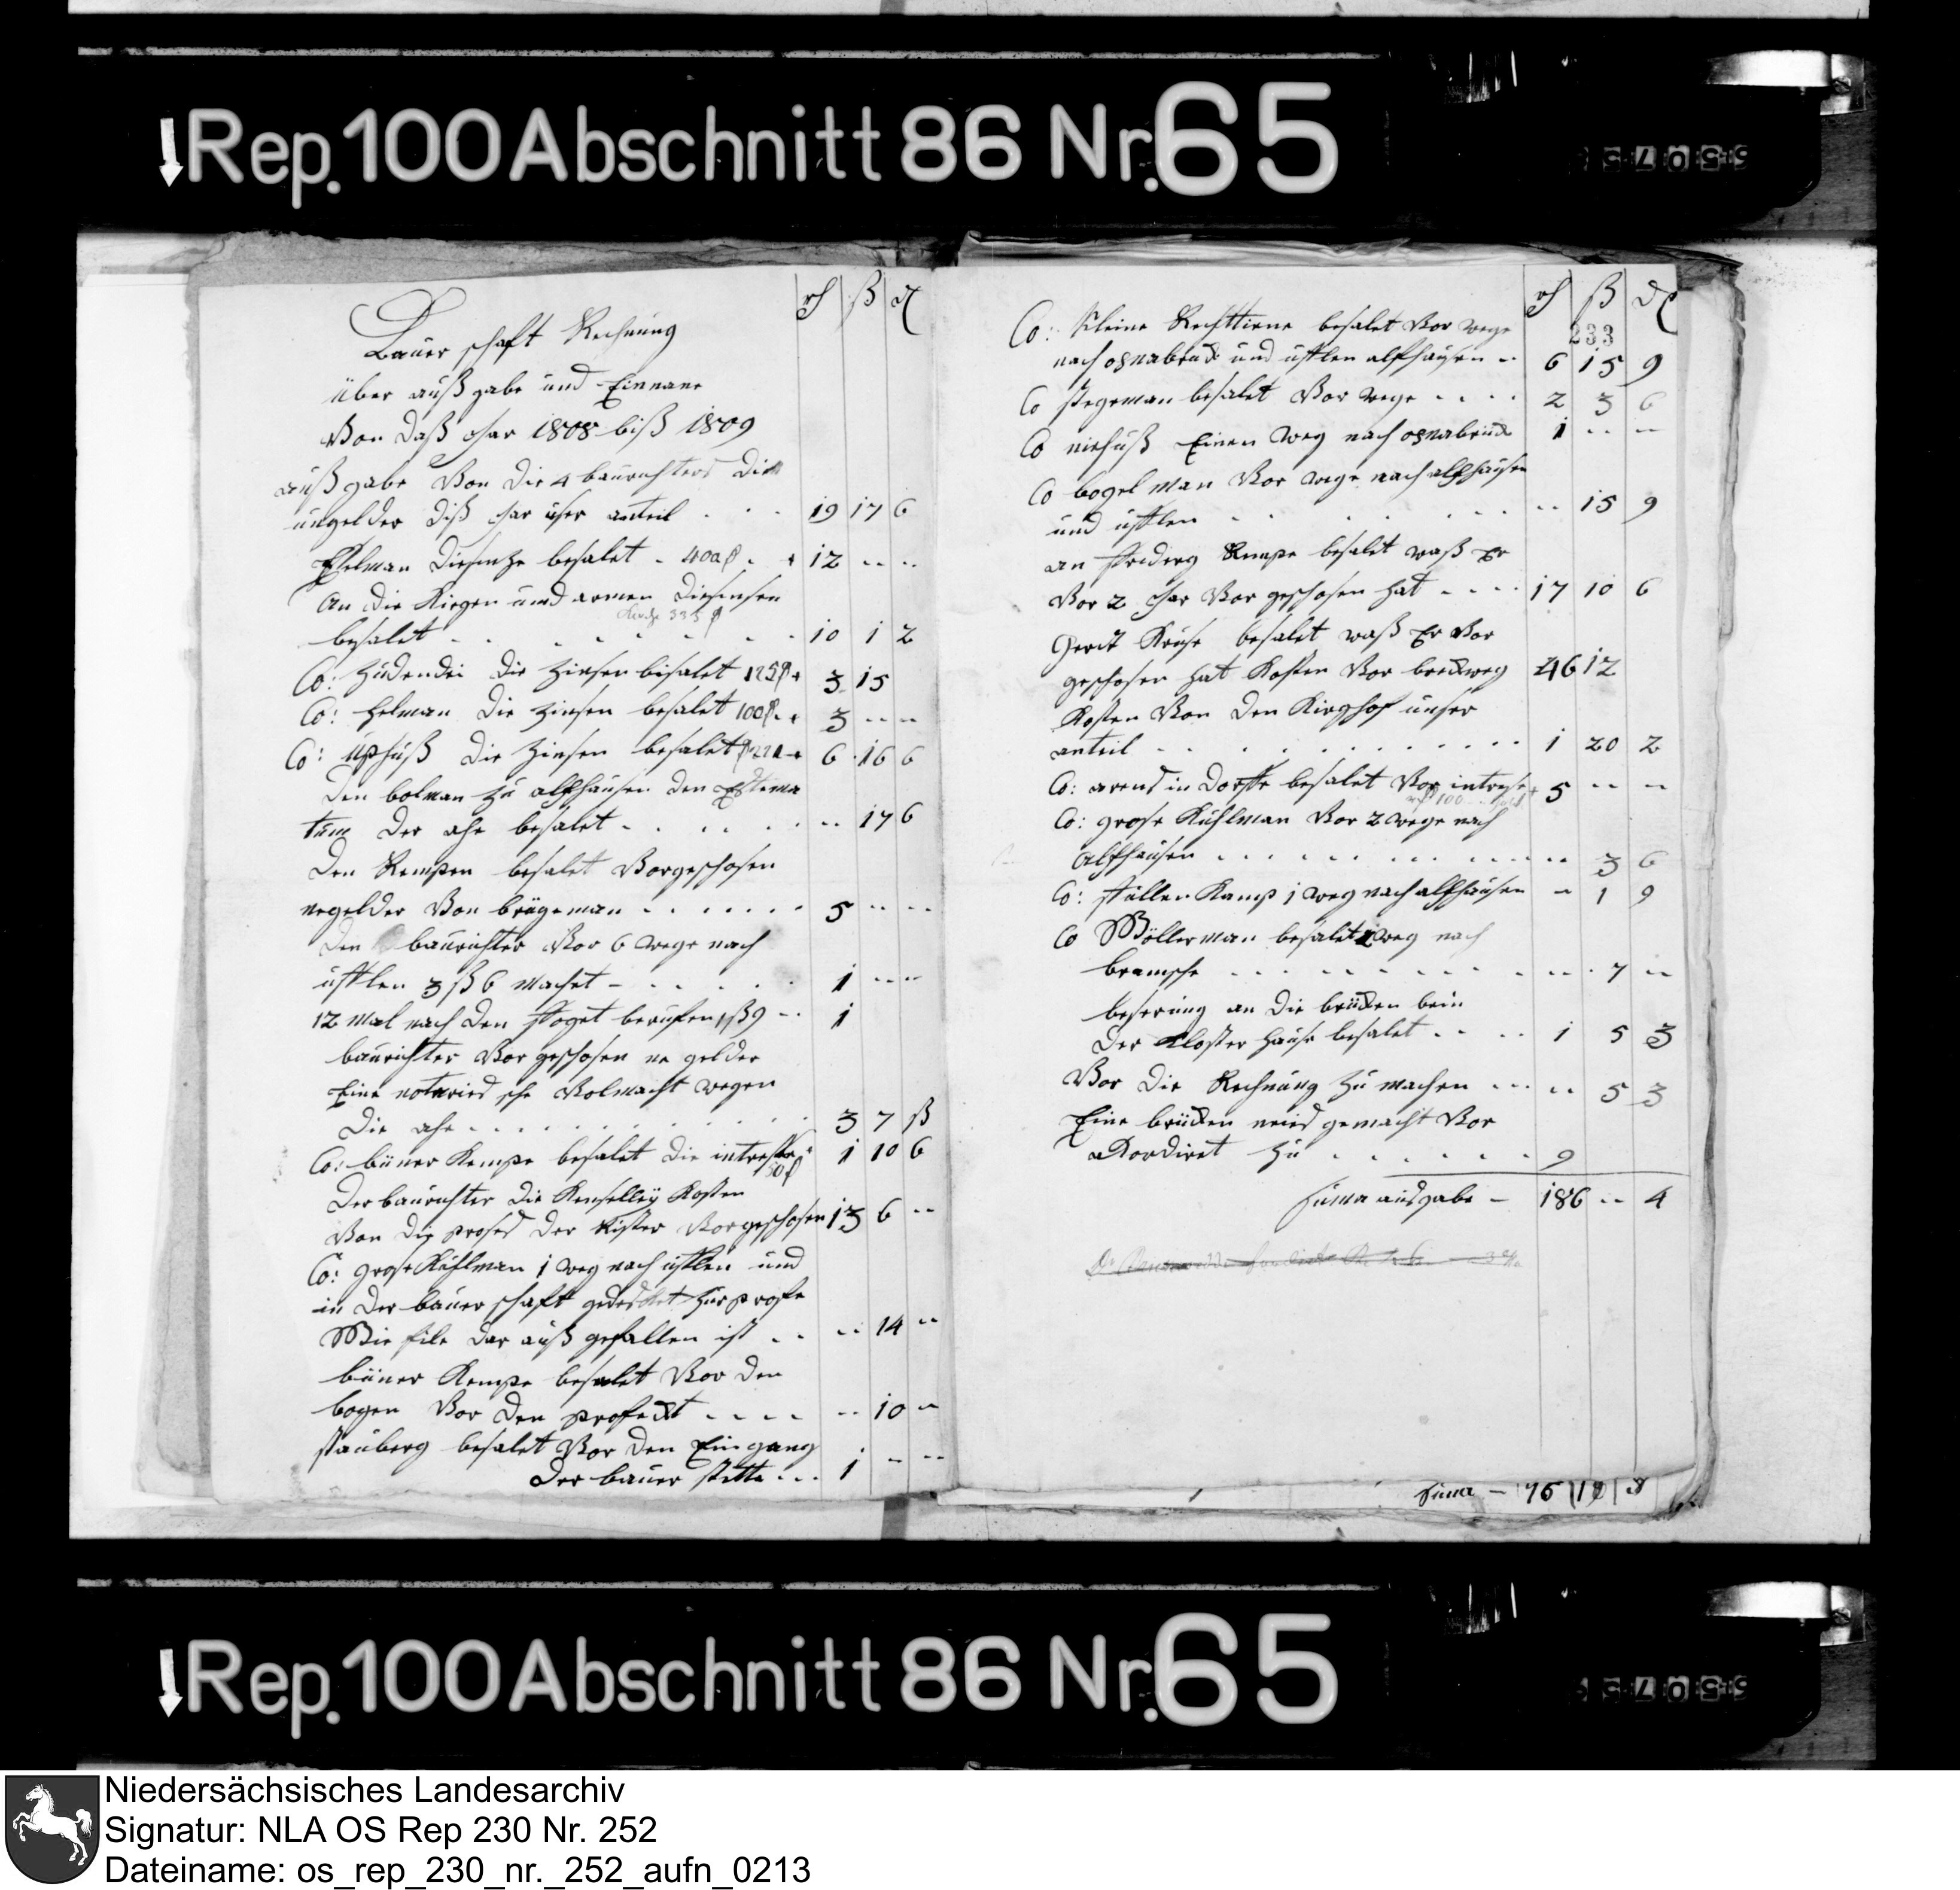 Rep. 100 Abschnitt 86 Nr. 65
rh ß d
Bauerschaft Rechnung
über außgabe und Einname
Von daß Jhar 1808 biß 1809
außgabe Von die 4 baurichters die
ungelder diß Jhar user anteil 19 17 6
besalet 400 12
An die Kirgen und armen
Kirche 335
besalet 10 1 2
Co: die Zinsen besalet 125 3 15
Co: Helman die Zinsen besalet 100 3
Co: die Zinsen besalet 6 16 6
den bolman zu alfhausen den
der ahe besalet 17 6
den Kempen besalet Vorgeschosen
negelder Von brügeman 5
den baurichter Vor 6 wege nach
üfflen 3 ß 6 machet 1
12 mal nach den Foget berufen 1 ß 9 1
baurichter Vorgeschosen ne gelder
Eine Volmacht wegen
die ahe 3 7 ß
Co: büner Kempe besalet die intresse 1 10 6
50
der baurichter die Kosten
Von die der Küster Vorgeschosen 13 6
Co: grose Kuhlman 1 weg nach üfflen und
in der bauerschaft
Wie file dar auß gefallen ist 14
büner Kempe besalet Vor den
bogen Vor den 10
stauberg besalet Vor den Eingang
der bauer stette 1
rh ß d
233
Co: Kleine Rechttiene besalet Vor wege
nach osnabrück und üfflen alfhausen 6 15 9
Co Stegeman besalet Vor wege 2 3 6
Co niehuß Einen weg nach osnabrück 1
Co bogelman Vor wege nach alfhausen
und üfflen 15 9
an Kempe besalet waß Er
Vor 2 Jhar Vor geschosen hat 17 10 6
Gerdt Kruse besalet waß Er Vor
geschosen hat Kosten Vor 46 12
Kosten Von den Kirghof unser
anteil 1 20 2
Co: arens in Dorffe besalet Vor intrese 5
100
Co: grose Kuhlman Vor 2 wege nach
Alfhausen 3 6
Co: stallen Kamp 1 weg nach alfhausen 1 9
Co Möllerman besalet weg nach
bramsche 7
beserung an die brücken bein
der Kloster hause besalet 1 5 3
Vor die Rechnung zu machen 5 3
Eine brücken neies gemacht Vor
akordiret zu 9
suma ausgabe 186 4
suma 76 19 8
Rep. 100 Abschnitt 86 Nr. 65
Niedersächsisches Landesarchiv
Signatur: NLA OS Rep 230 Nr. 252
Dateiname: os_rep_230_nr._252_aufn_0213